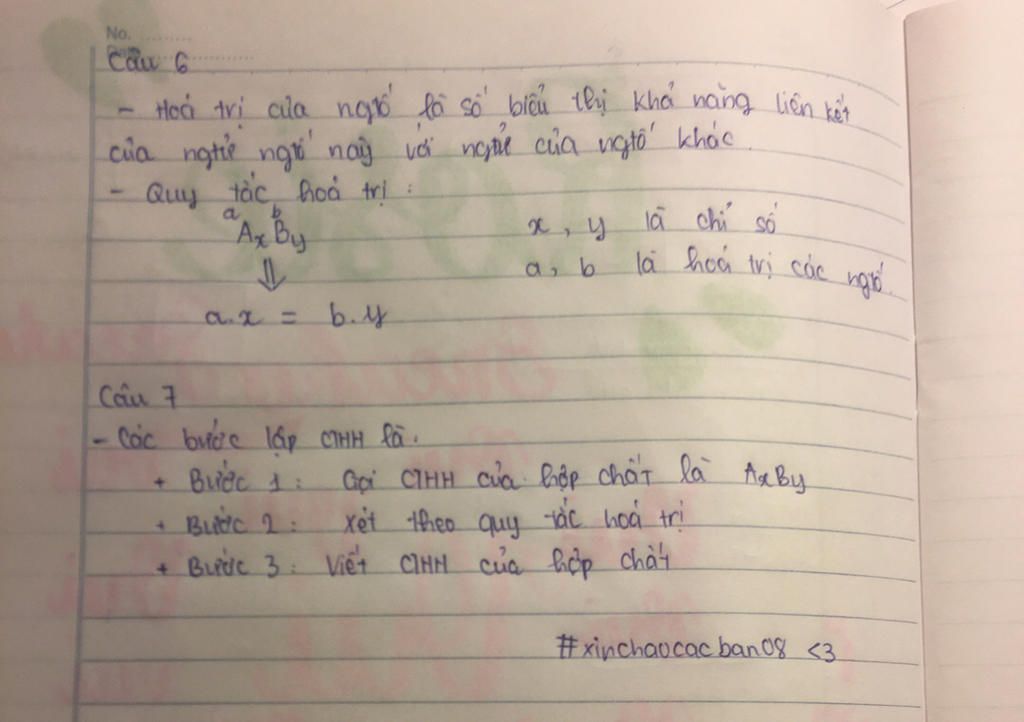 No. ..........
Câu 6
- Hoá trị của ngtố là số biểu thị khả năng liên kết
của ngtử ngtố này với ngtử của ngtố khác.
- Quy tắc hoá trị :
a b
AxBy
x, y là chỉ số
⇓
a, b là hoá trị các ngtố.
a.x = b.y
Câu 7
- Các bước lập CTHH là.
+ Bước 1 : Gọi CTHH của hợp chất là AxBy
+ Bước 2 : xét theo quy tắc hoá trị
+ Bước 3 : Viết CTHH của hợp chất
#xinchaocacban08 <3